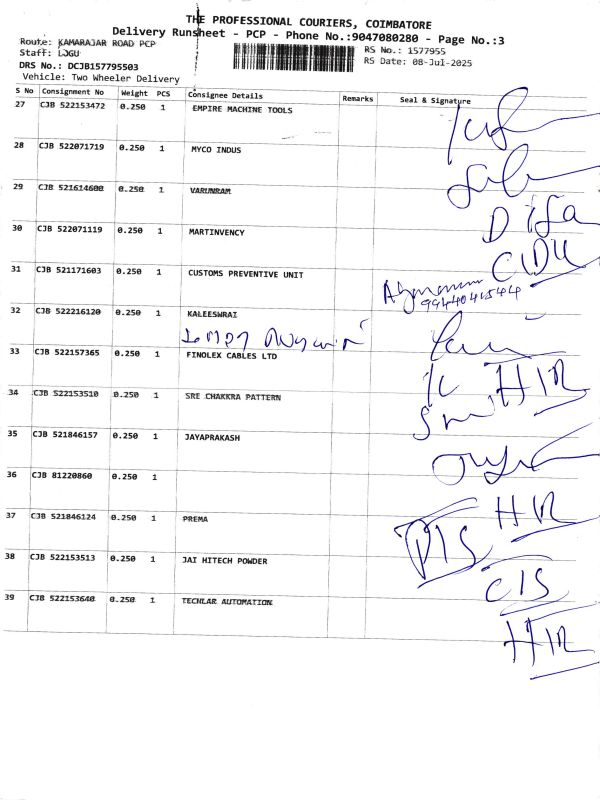 THE PROFESSIONAL COURIERS, COIMBATORE
Delivery Runsheet - PCP - Phone No.:9047080280 - Page No.:3
Route: KAMARAJAR ROAD PCP
RS No.: 1577955
Staff: LOGU
RS Date: 08-Jul-2025
DRS No.: DCJB157795503
Vehicle: Two Wheeler Delivery
S No Consignment No Weight PCS Consignee Details Remarks Seal & Signature
27 CJB 522153472 0.250 1 EMPIRE MACHINE TOOLS
28 CJB 522071719 0.250 1 MYCO INDUS
29 CJB 521614600 0.250 1 VARUNRAM
30 CJB 522071119 0.250 1 MARTINVENCY
31 CJB 521171603 0.250 1 CUSTOMS PREVENTIVE UNIT
32 CJB 522216120 0.250 1 KALEESWRAI
33 CJB 522157365 0.250 1 FINOLEX CABLES LTD
HIR
34 CJB 522153510 0.250 1 SRE CHAKKRA PATTERN
35 CJB 521846157 0.250 1 JAYAPRAKASH
36 CJB 81220860 0.250 1
HIR
37 CJB 521846124 0.250 1 PREMA
38 CJB 522153513 0.250 1 JAI HITECH POWDER
CIS
39 CJB 522153640 0.250 1 TECHLAR AUTOMATION
HIR